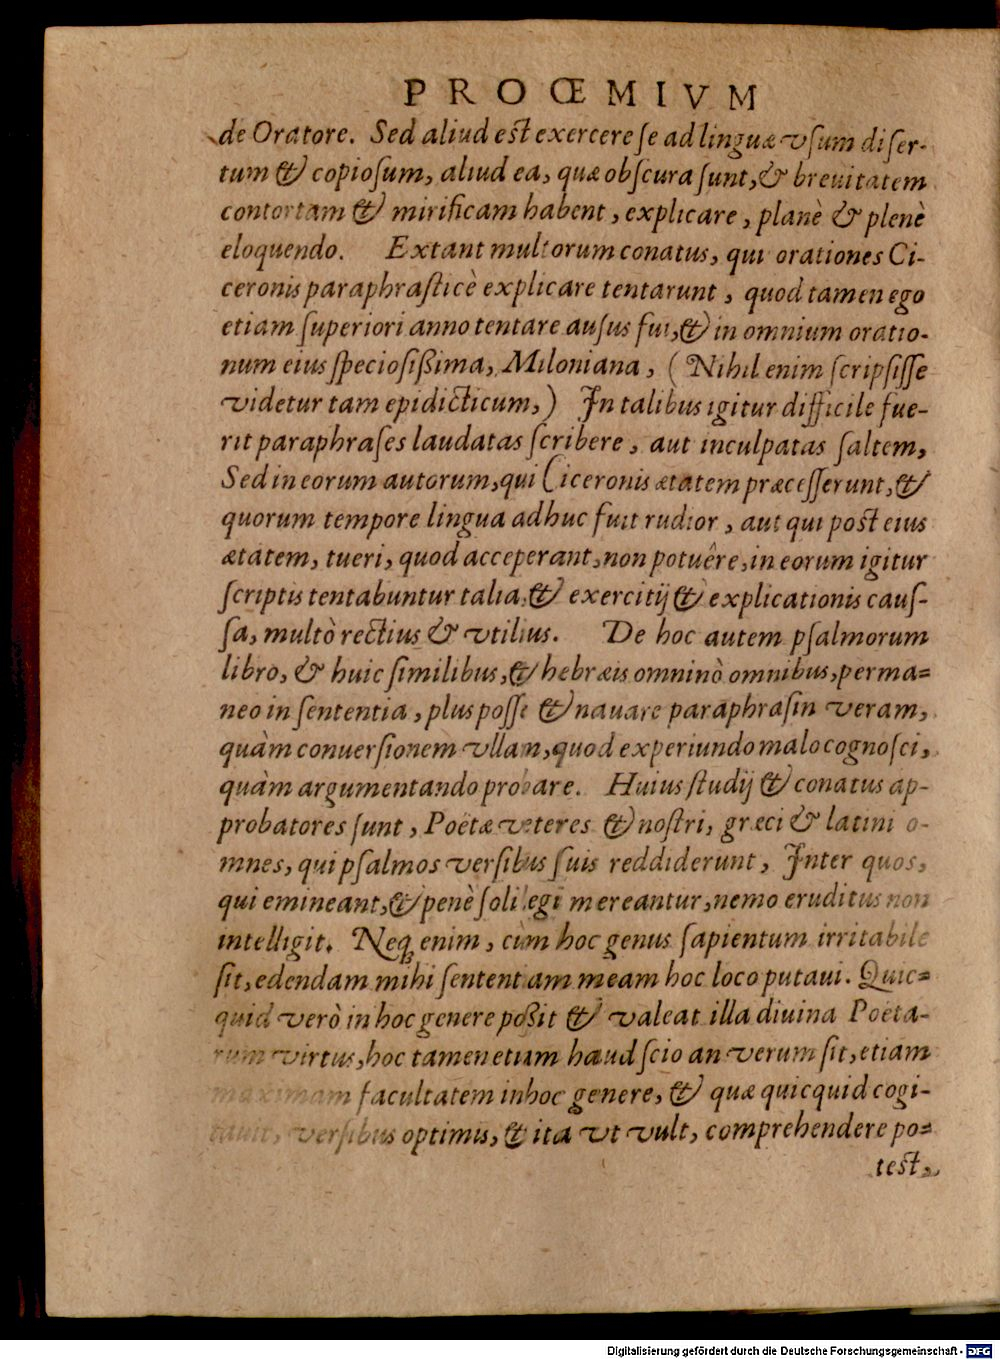 PROŒMIVM
de Oratore. Sed aliud est exercere se ad linguæ vſum diſer-
tum & copioſum, aliud ea, quæ obſcura ſunt, & breuitatem
contortam & mirificam habent, explicare, planè & plenè
eloquendo. Extant multorum conatus, qui orationes Ci-
ceronis paraphraſticè explicare tentarunt, quod tamen ego
etiam ſuperiori anno tentare auſus fui, & in omnium oratio-
num eius ſpecioſißima, Miloniana, (Nihil enim ſcripſiſſe
videtur tam epidicticum,) In talibus igitur difficile fue-
rit paraphraſes laudatas ſcribere, aut inculpatas ſaltem,
Sed in eorum autorum, qui Ciceronis ætatem præceſſerunt, &
quorum tempore lingua adhuc fuit rudior, aut qui post eius
ætatem, tueri, quod acceperant, non potuêre, in eorum igitur
ſcriptis tentabuntur talia, & exercitij & explicationis cauſ-
ſa, multò rectius & vtilius. De hoc autem pſalmorum
libro, & huic ſimilibus, & hebræis omninò omnibus, perma=
neo in ſententia, plus poſſe & nauare paraphraſin veram,
quàm conuerſionem vllam, quod experiundo malo cognoſci,
quàm argumentando probare. Huius ſtudij & conatus ap-
probatores ſunt, Poëtæ veteres & noſtri, græci & latini o-
mnes, qui pſalmos verſibus ſuis reddiderunt, Inter quos,
qui emineant, & penè ſoli legi mereantur, nemo eruditus non
intelligit. Neq; enim, cùm hoc genus ſapientum irritabile
ſit, edendam mihi ſententiam meam hoc loco putaui. Quic=
quid verò in hoc genere poßit & valeat illa diuina Poëta-
rum virtus, hoc tamen etiam haud ſcio an verum ſit, etiam
maximam facultatem in hoc genere, & quæ quicquid cogi-
tauit, verſibus optimis, & ita vt vult, comprehendere po=
test,
Digitalisierung gefördert durch die Deutsche Forschungsgemeinschaft - DFG